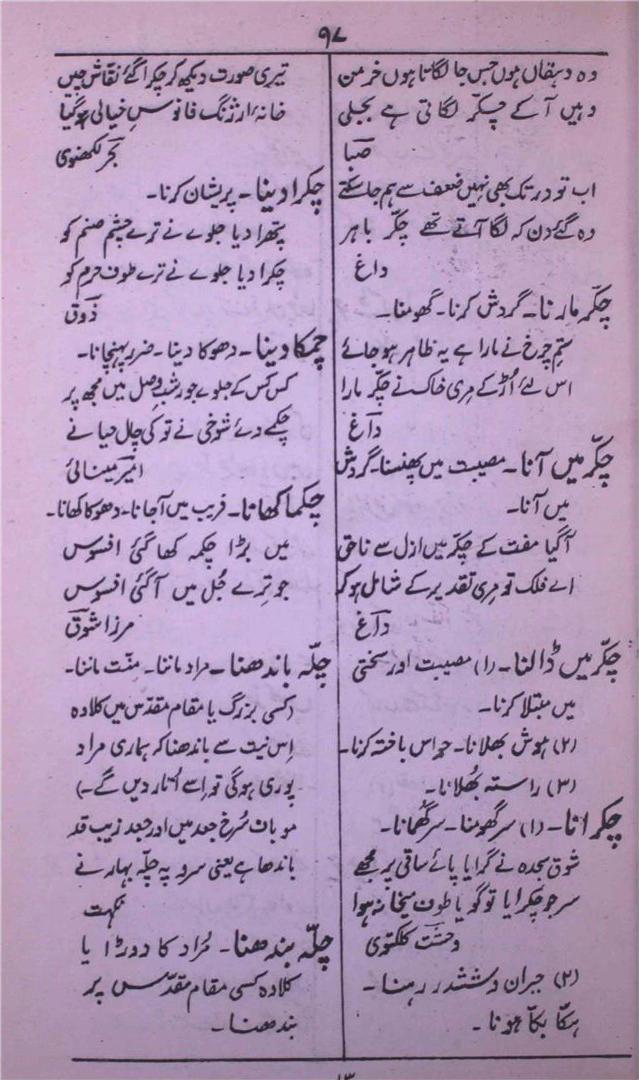 ۹۷
وہ دہقاں ہوں جس جا لگاتا ہوں خرمن
وہیں آ کے چکّر لگاتی ہے بجلی
صبا
اب تو در تک بھی نہیں ضعف سے ہم جا سکتے
وہ گئے دن کہ لگا آتے تھے چکّر باہر
داغ
چکّر مارنا۔ گردش کرنا۔ گھومنا۔
ستمِ چرخ نے مارا ہے یہ ظاہر ہو جائے
اس لئے اُڑ کے مِری خاک نے چکّر مارا
داغ
چکّر میں آنا۔ مصیبت میں پھنسنا۔ گردش
میں آنا۔
آگیا مفت کے چکّر میں ازل سے ناحق
اے فلک تو مِری تقدیر کے شامل ہو کر
داغ
چکّر میں ڈالنا۔ (۱) مصیبت اور سختی
میں مبتلا کرنا۔
(۲) ہوش بھلانا۔ حواس باختہ کرنا۔
(۳) راستہ بُھلانا۔
چکرانا۔ (۱) سر گھومنا۔ سر گُھمانا۔
شوقِ سجدہ نے گرایا پائے ساقی پر مجھے
سر جو چکرایا تو گویا طوفِ میخانہ ہوا
وحشت کلکتوی
(۲) حیران و ششدر رہنا۔
ہکّا بکّا ہونا۔
تیری صورت دیکھ کر چکرا گئے نقّاش چیں
خانۂ ارژنگ فانوسِ خیالی ہو گیا
بحر لکھنوی
چکرا دینا۔ پریشان کرنا۔
پتھرا دیا جلوے نے ترے چشمِ صنم کو
چکرا دیا جلوے نے ترے طوفِ حرم کو
ذوق
چمکا دینا۔ دھوکا دینا۔ ضرر پہنچانا۔
کس کس کے جلوے جو رشبِ وصل میں مجھ پر
چکمے دئے شوخی نے تو کی چال حیا نے
امیر مینائی
چکما کھانا۔ فریب میں آجانا۔ دھوکا کھانا۔
میں بڑا چکمہ کھا گئی افسوس
جو تِرے جُل میں آ گئی افسوس
مرزا شوق
چلّہ باندھنا۔ مراد ماننا۔ منّت ماننا۔
(کسی بزرگ یا مقام مقدّس میں کلادہ
اِس نیت سے باندھنا کہ ہماری مراد
پوری ہوگی تو اِسے اُتار دیں گے۔)
موباف سُرخ جعد میں اور جعد زیب قد
باندھا ہے یعنی سرو پہ چلّہ بہار نے
نکہت
چلّہ بندھنا۔ مُراد کا دورا یا
کلادہ کسی مقام مقدّس پر
بندھنا۔
۱۳